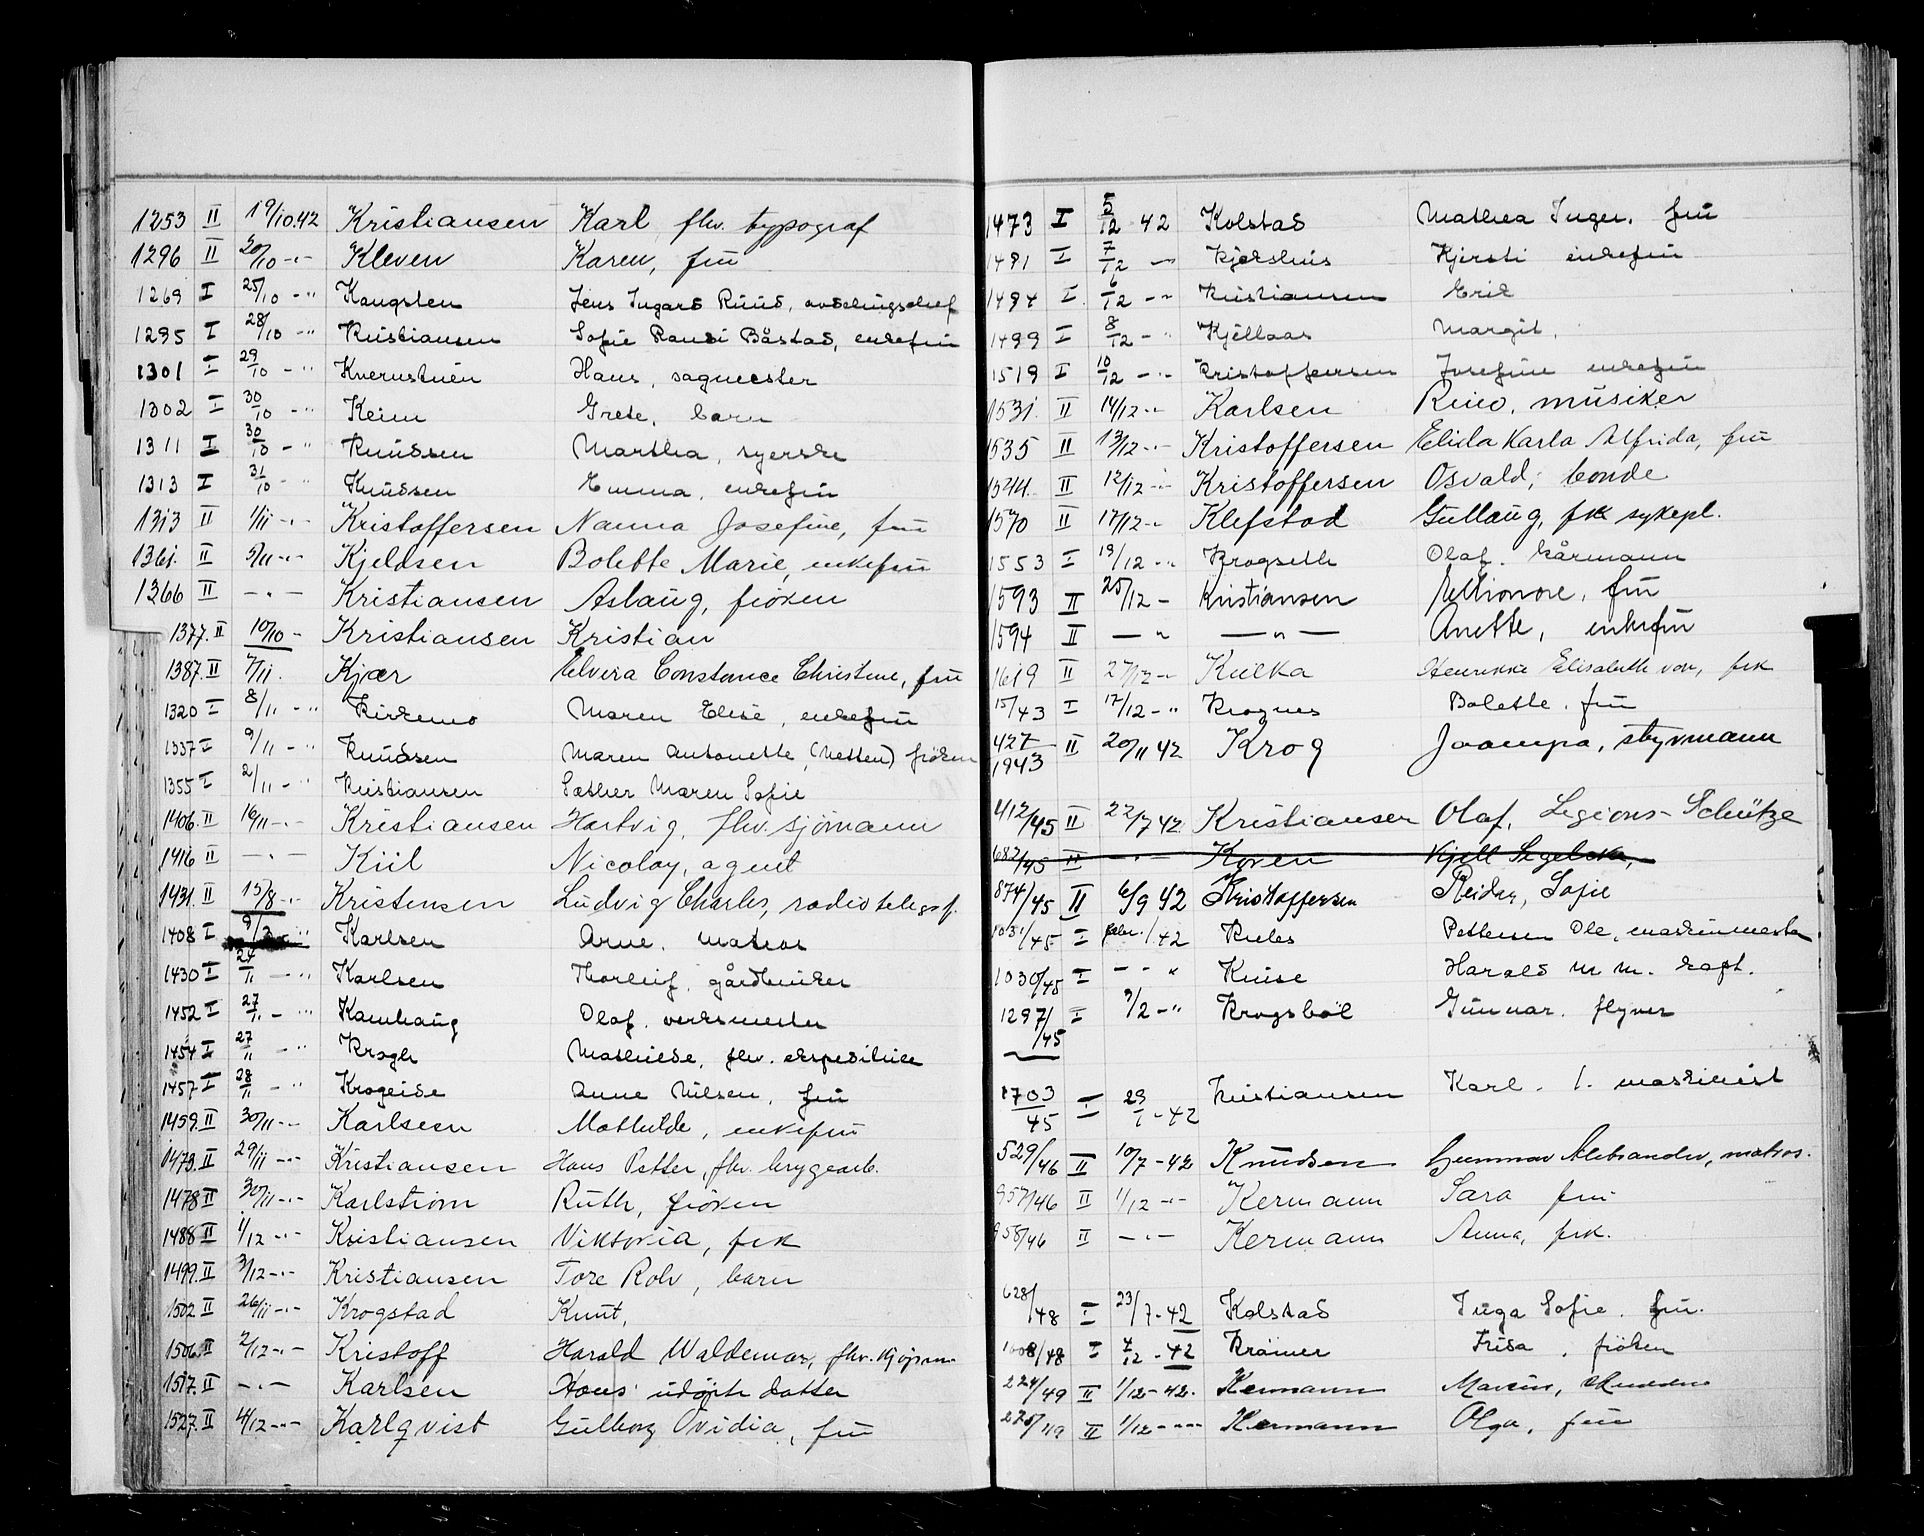 1253 II 19/10.42 Kristiansen Karl, fhv. typograf
1296 II 20/10 -"- Kleven Karen, frü
1269 I 25/10 -" Kaugsten Jens Ingard Rüüd, avdelingschef
1295 I 28/10 -" Kristiansen Sofie Randi Båstad, enkefrü
1301 I 29/10 -" Kvernstuen Hans, sagmester
1302 I 30/10 -" Keim Grete, barn
1311 I 30/10 -" Knüdsen Martha, syerske
1313 I 31/10 -" Knüdsen Emma, enkefrü
1313 II 1/11 -"- Kristoffersen Nanna Josefine, frü
1361. II 5/11 -"- Kjeldsen Bolette Marie, enkefrü
1366 II -"- Kristiansen Aslaüg, fröken
1377. II 10/10 - Kristiansen Kristian
1387. II 7/11. Kjær Elvira Constance Christine, frü
1320 I 8/11 -" Kirkemo Maren Elise, enkefrü
1337 I 9/11 -" Knüdsen Maren Antonette (Netten) fröken
1355 I 2/11 -" Kristiansen Sæther Maren Sofie
1406. II 16/11 -"- Kristiansen Hartvig, fhv. sjömann
1416 II -"- Kiil Nicolay, agent
1431. II 15/8 -"- Kristensen Lüdvig Charles, radiotelegraf.
1408 I Karlsen Arne, matros
1430 I 24/11 -" Karlsen Thorleif, gårdbruker
1452 I 27/11 -" Kamhaug Olaf, verksmester
1454 I 27/11 -" Krogh Mathilde, fhv. ekspeditrice
1457 I 28/11 -" Krogeide Anne Nilsen, frü
1459. II 30/11 -"- Karlsen Mathilde, enkefrü
1473. II 29/11 -"- Kristiansen Hans Petter, fhv. bryggearb.
1478 II 30/11 -"- Karlström Rüth, fröken
1488 II 1/12 -"- Kristiansen Viktoria, frk
1499. II 3/12 -"- Kristiansen Tore Rolv, barn
1502 II 26/11 -"- Krogstad Knut,
1506. II 2/12 -"- Kristoff Harald Waldemar, fhv. kjöpm.
1517. II -"- Karlsen Hans' üdöpte datter
1527. II 4/12 -"- Karlqvist Gülborg Ovidia, frü
1473 I 5/12 - 42 Kolstad Mathea Inger, frü
1491 I 7/12 -" Kjekshus Kjersti enkefrü
1494 I 6/12 -" Kristiansen Erik
1499 I 8/12 -" Kjellaas Margit.
1519 I 10/12 -" Kristoffersen Josefine enkefrü
1531. II 14/12 -"- Karlsen , müsiker
1535 II 13/12 -"- Kristoffersen Elida Karla Alfrida, frü
II 12/12 -"- Kristoffersen Osvald, bonde
1570 II 17/12 -"- Klefstad Güllaüg, frk sykepl.
1553 I 19/12 -" Krogseth Olaf, kårmann
1593 II 25/12 - Kristiansen frü
1594 II -"- -"- Anette, enkefrü
1619 II 27/12 -" Kulka Henrikke Elisabeth von, frk
15/43 I 17/12 -" Krognes Bolette. frü
427/1943 II 20/11 42 Krog styrmann
412/45 II 22/7 42 Kristiansen Olaf, Legions-Schütze
683/45 II -"- Koren Kjell Segelcke,
874/45 II 6/9 42 Kristoffersen Reidar, Sofie
1031/45 - I febr. / 42 Pettersen Ole, maskinmester
1030/45 I -"- " Knise Harald M. M. kapt.
1297/45 I 9/2 -" Krogsböl Günnar. flyver
1703/45 I 29/1 - 42 Kristiansen Karl. 1. maskinist
529/46 II 10/7 - 42 Knüdsen Gunnar Aleksander, matros.
957/46 II 1/12 -"- Kermann Sara frü
958/46 II -"- Kermann Anna, frk.
628/48 I 23/7 - 42 Kolstad Inga Sofie. frü.
1008/48 I 7/12 - 42 Krämer Frida, fröken
224/49 II 1/12 - 42. Kermann
225/49 II 1/12 -"- Kermann Olga, frü